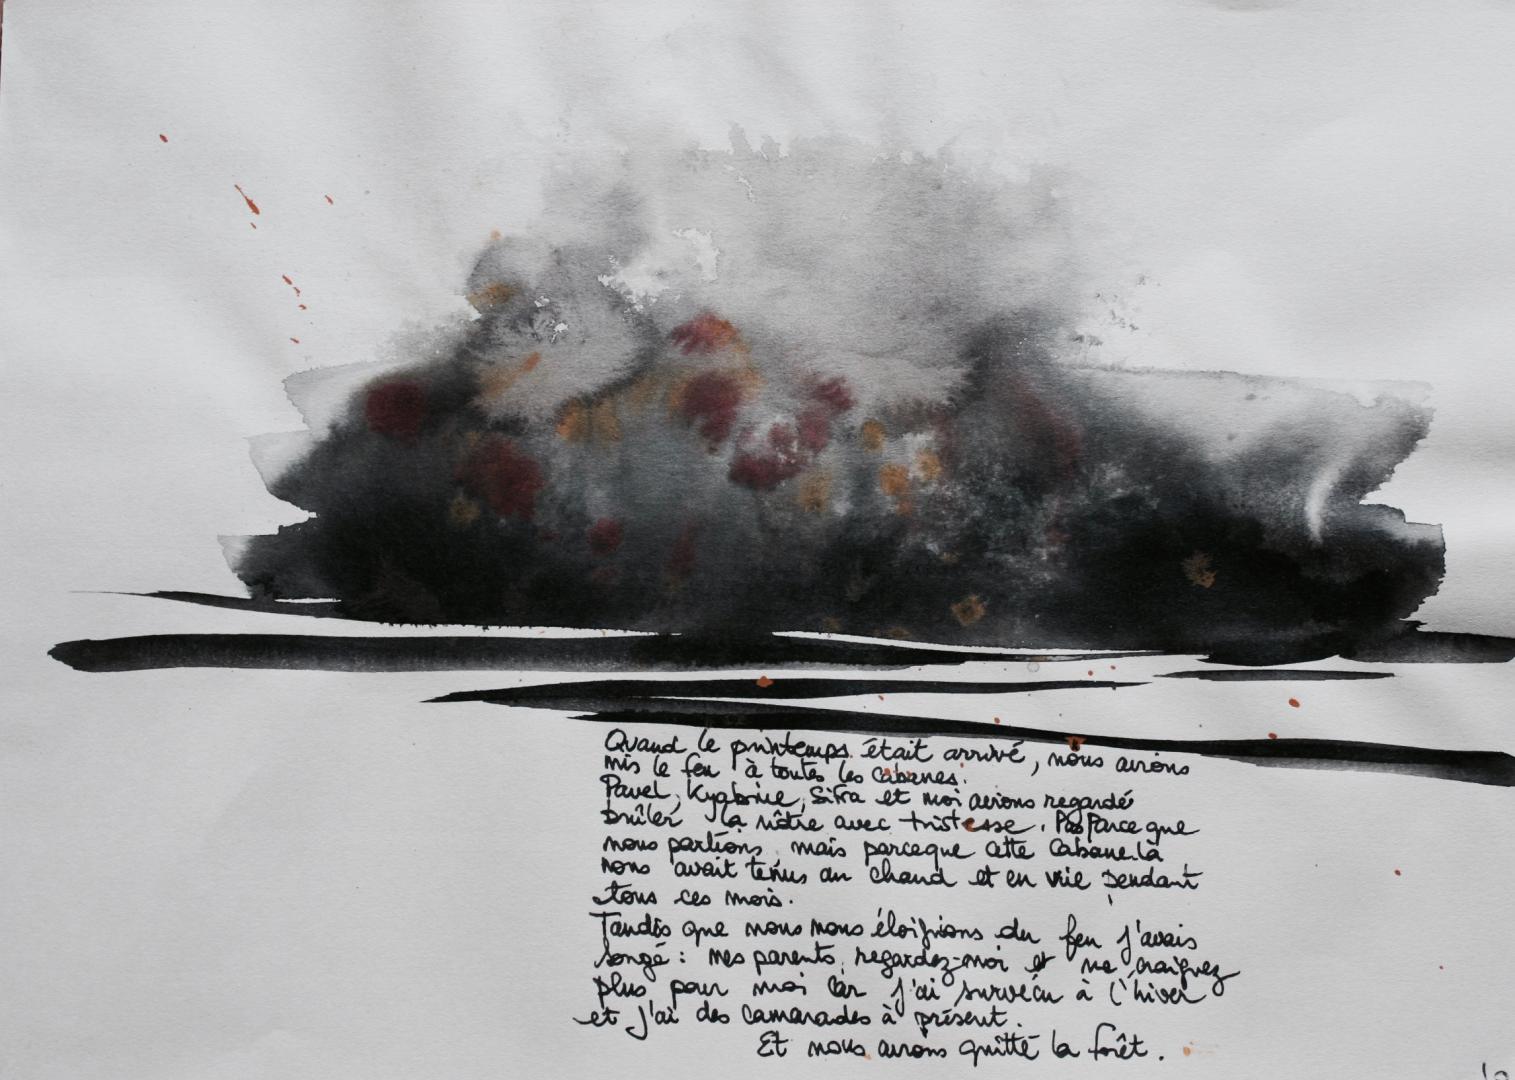 Quand le printemps était arrivé, nous avions
mis le feu à toutes les cabanes.
Pavel, Kyabine, Sifra et moi avions regardé
brûler la nôtre avec tristesse. Pas parce que
nous partions, mais parceque cette cabane là
nous avait tenus au chaud et en vie pendant
tous ces mois.
Tandis que nous nous éloignions du feu j'avais
songé : mes parents, regardez-moi et ne craignez
plus pour moi car j'ai survécu à l'hiver
et j'ai des camarades à présent.
Et nous avions quitté la forêt.